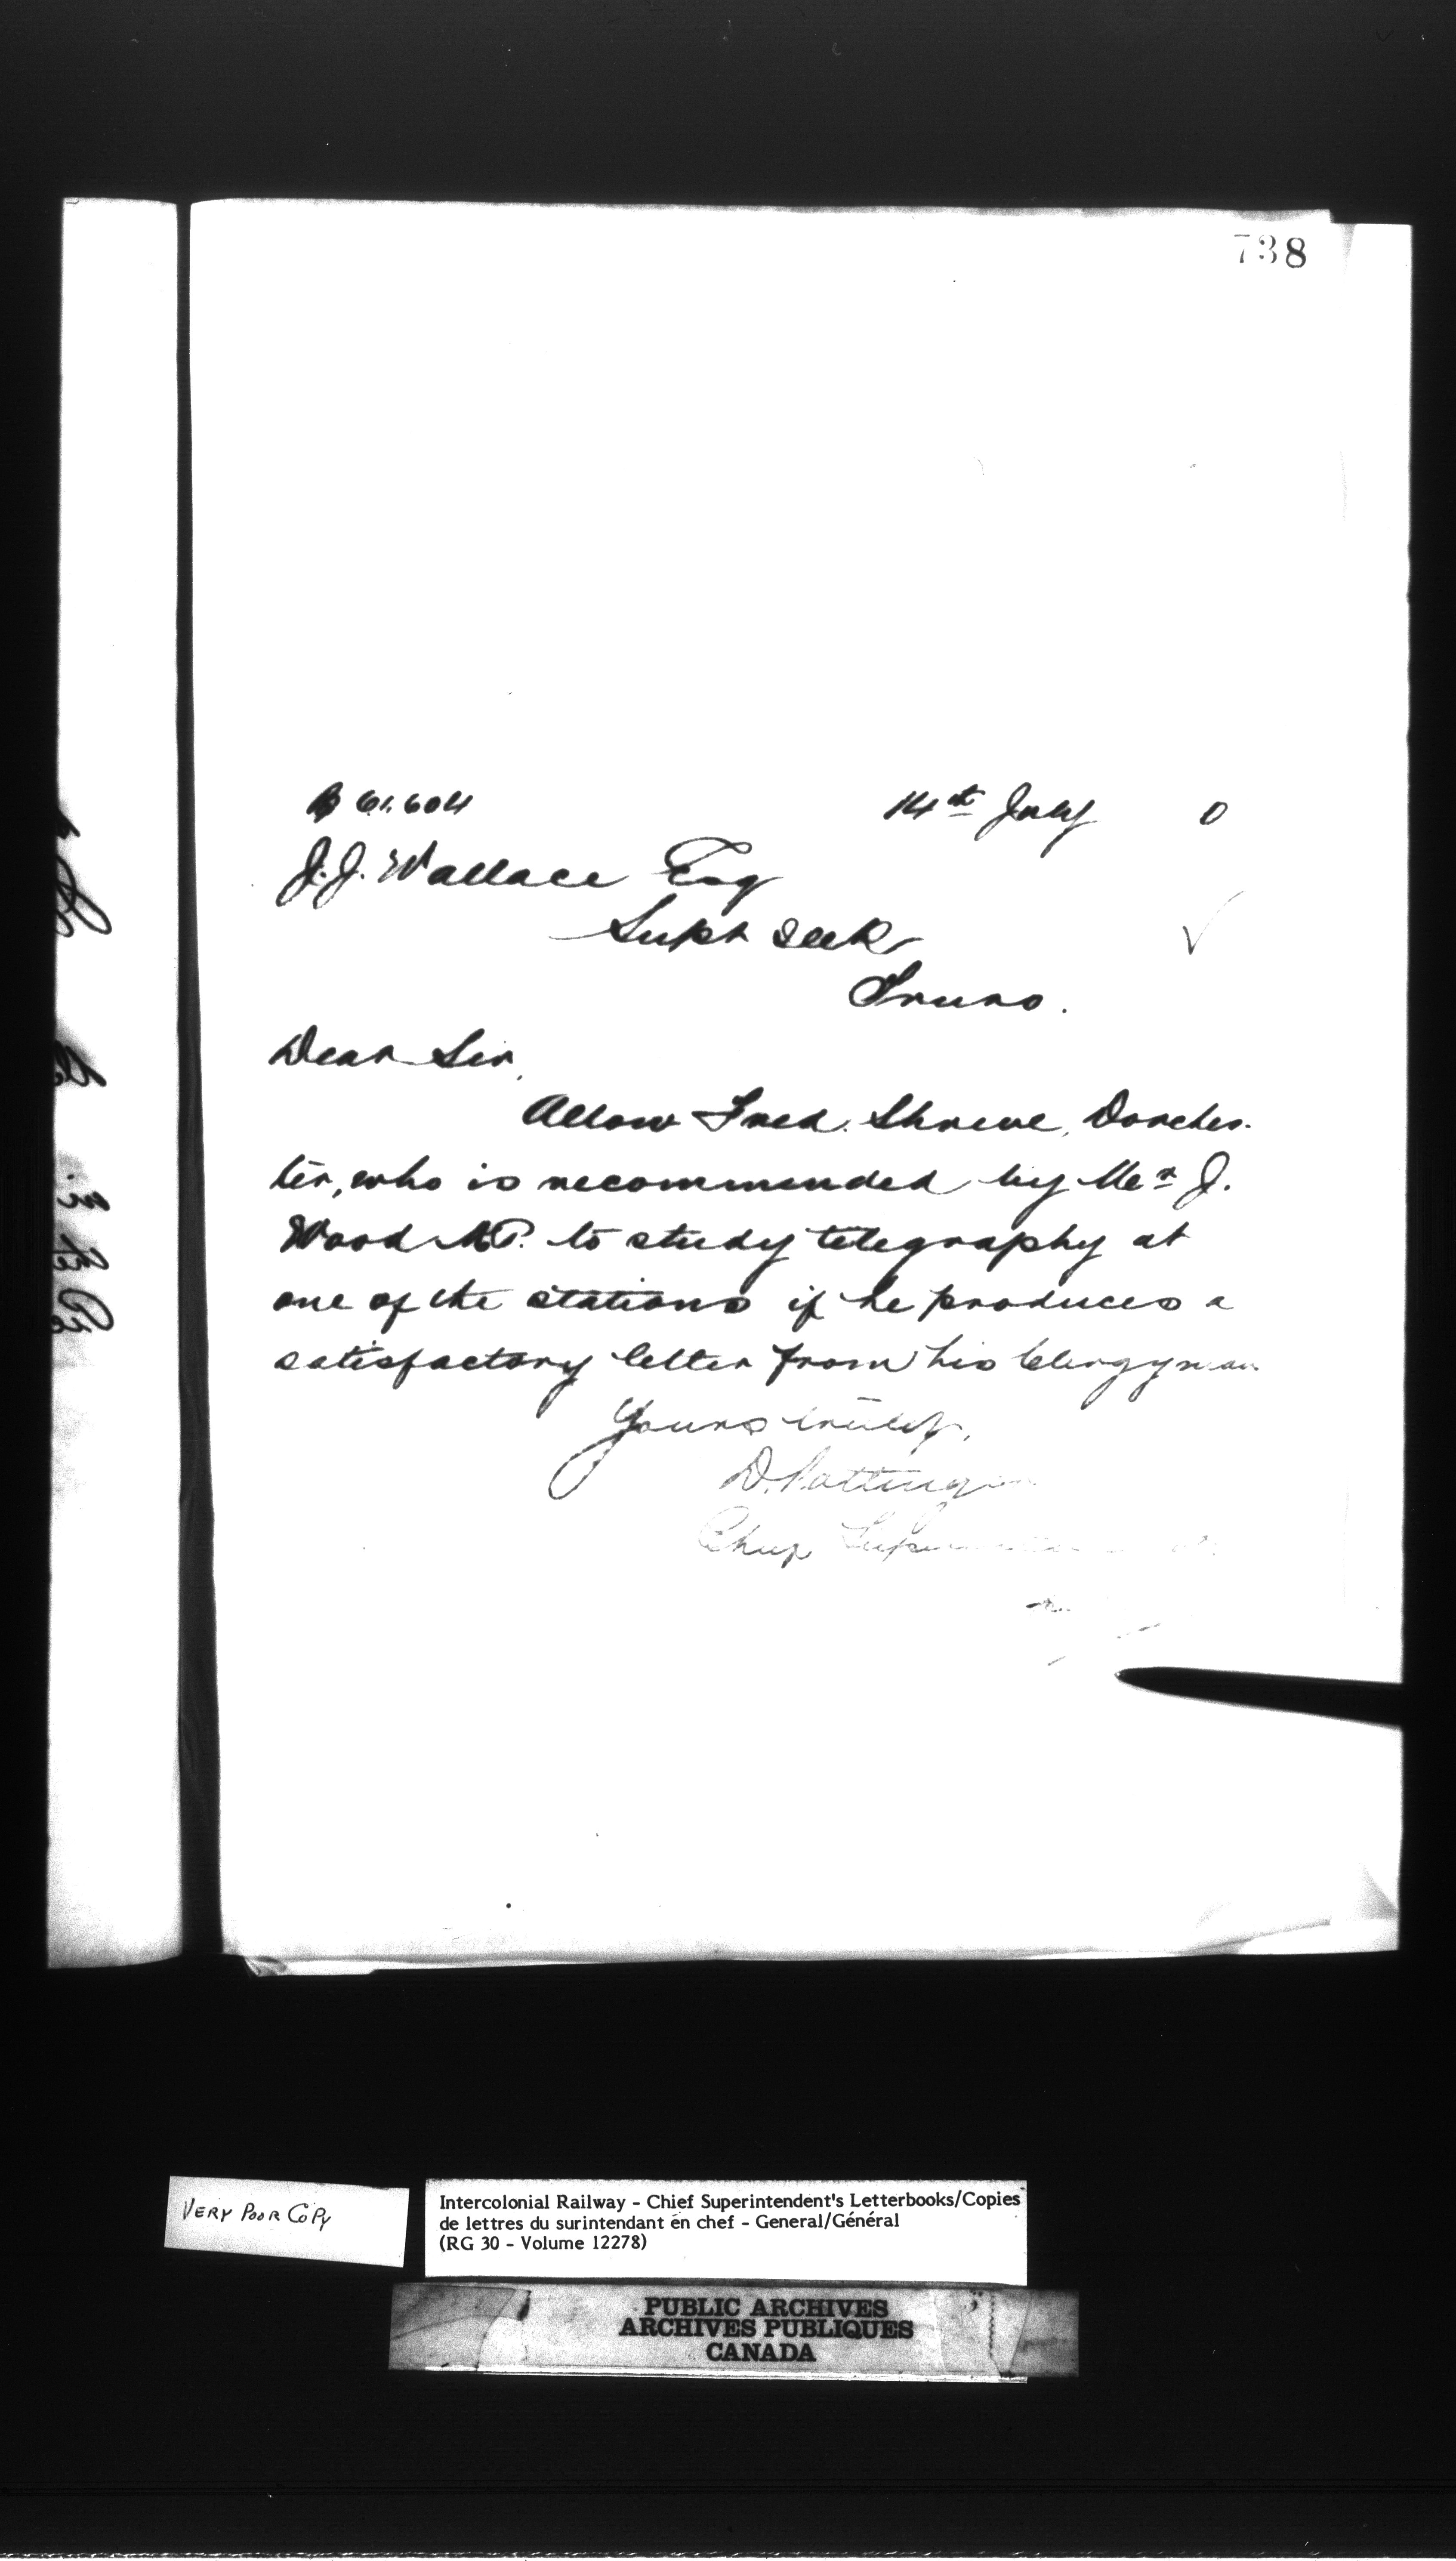 738
B 61.604 14th July 0
J. J. Wallace Esq
Supt
Truro.
Dear Sir,
Allow Fred. Shreve, Dorches-
ter, who is recommended by Mr J.
Wood M.P. to study telegraphy at
one of the stations if he produces a
satisfactory letter from his Clergyman
Yours truly,
D. Pottinger
Chief Superintendent
VERY POOR COPY
Intercolonial Railway - Chief Superintendent's Letterbooks/Copies
de lettres du surintendant en chef - General/Général
(RG 30 - Volume 12278)
PUBLIC ARCHIVES
ARCHIVES PUBLIQUES
CANADA